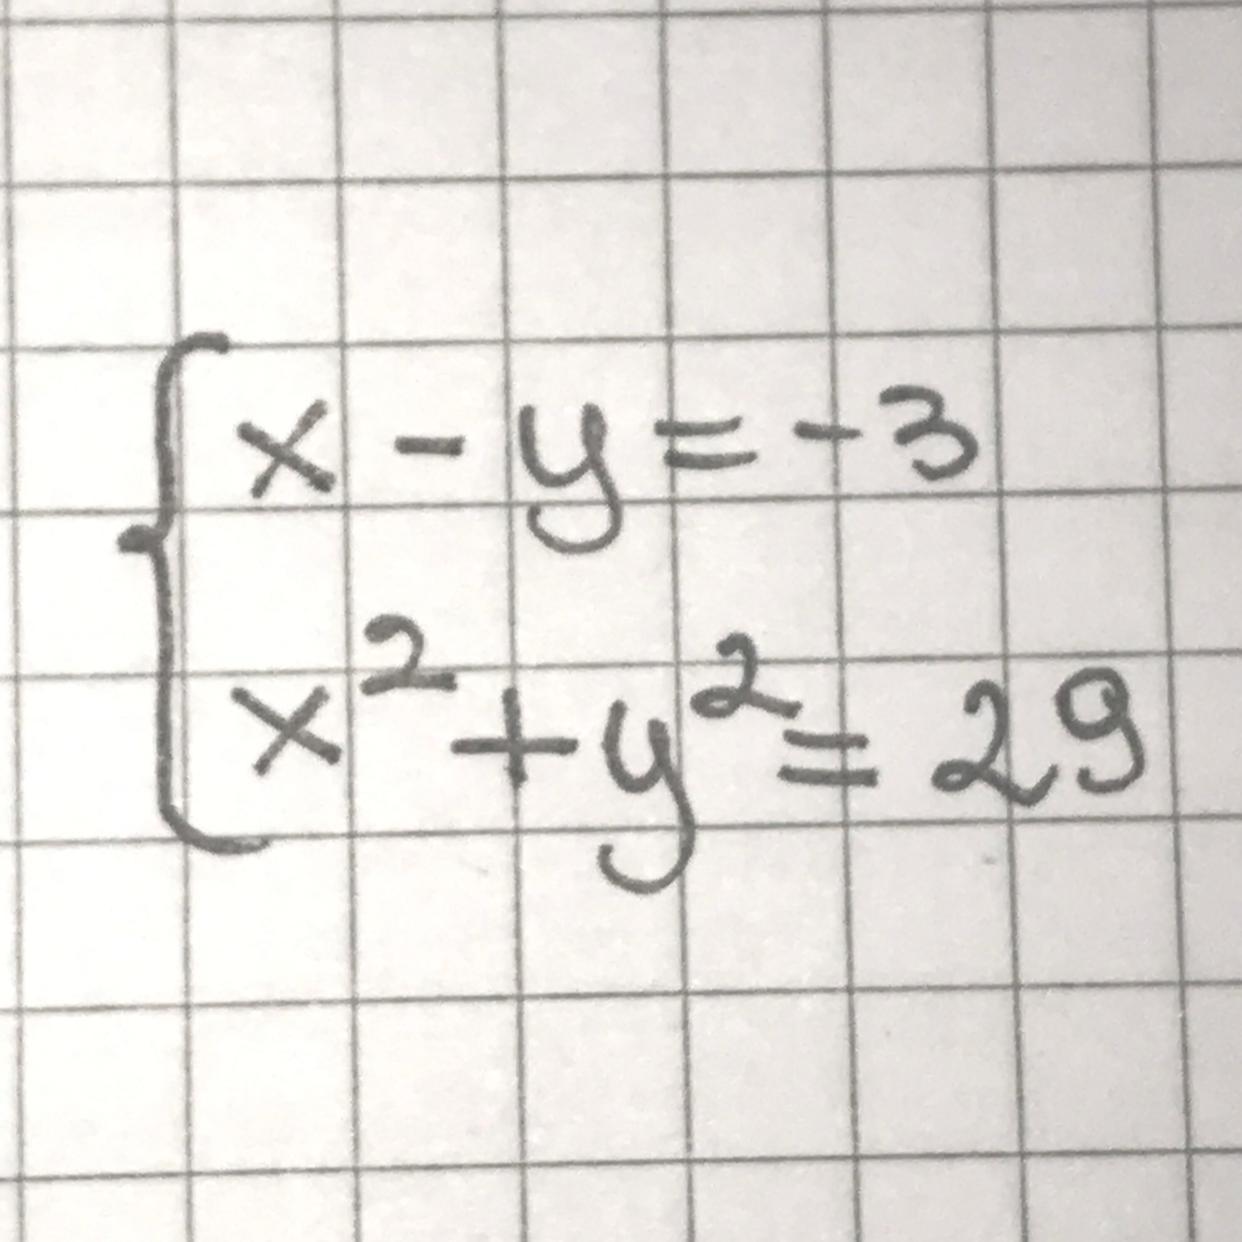 x - y = -3
x² + y² = 29